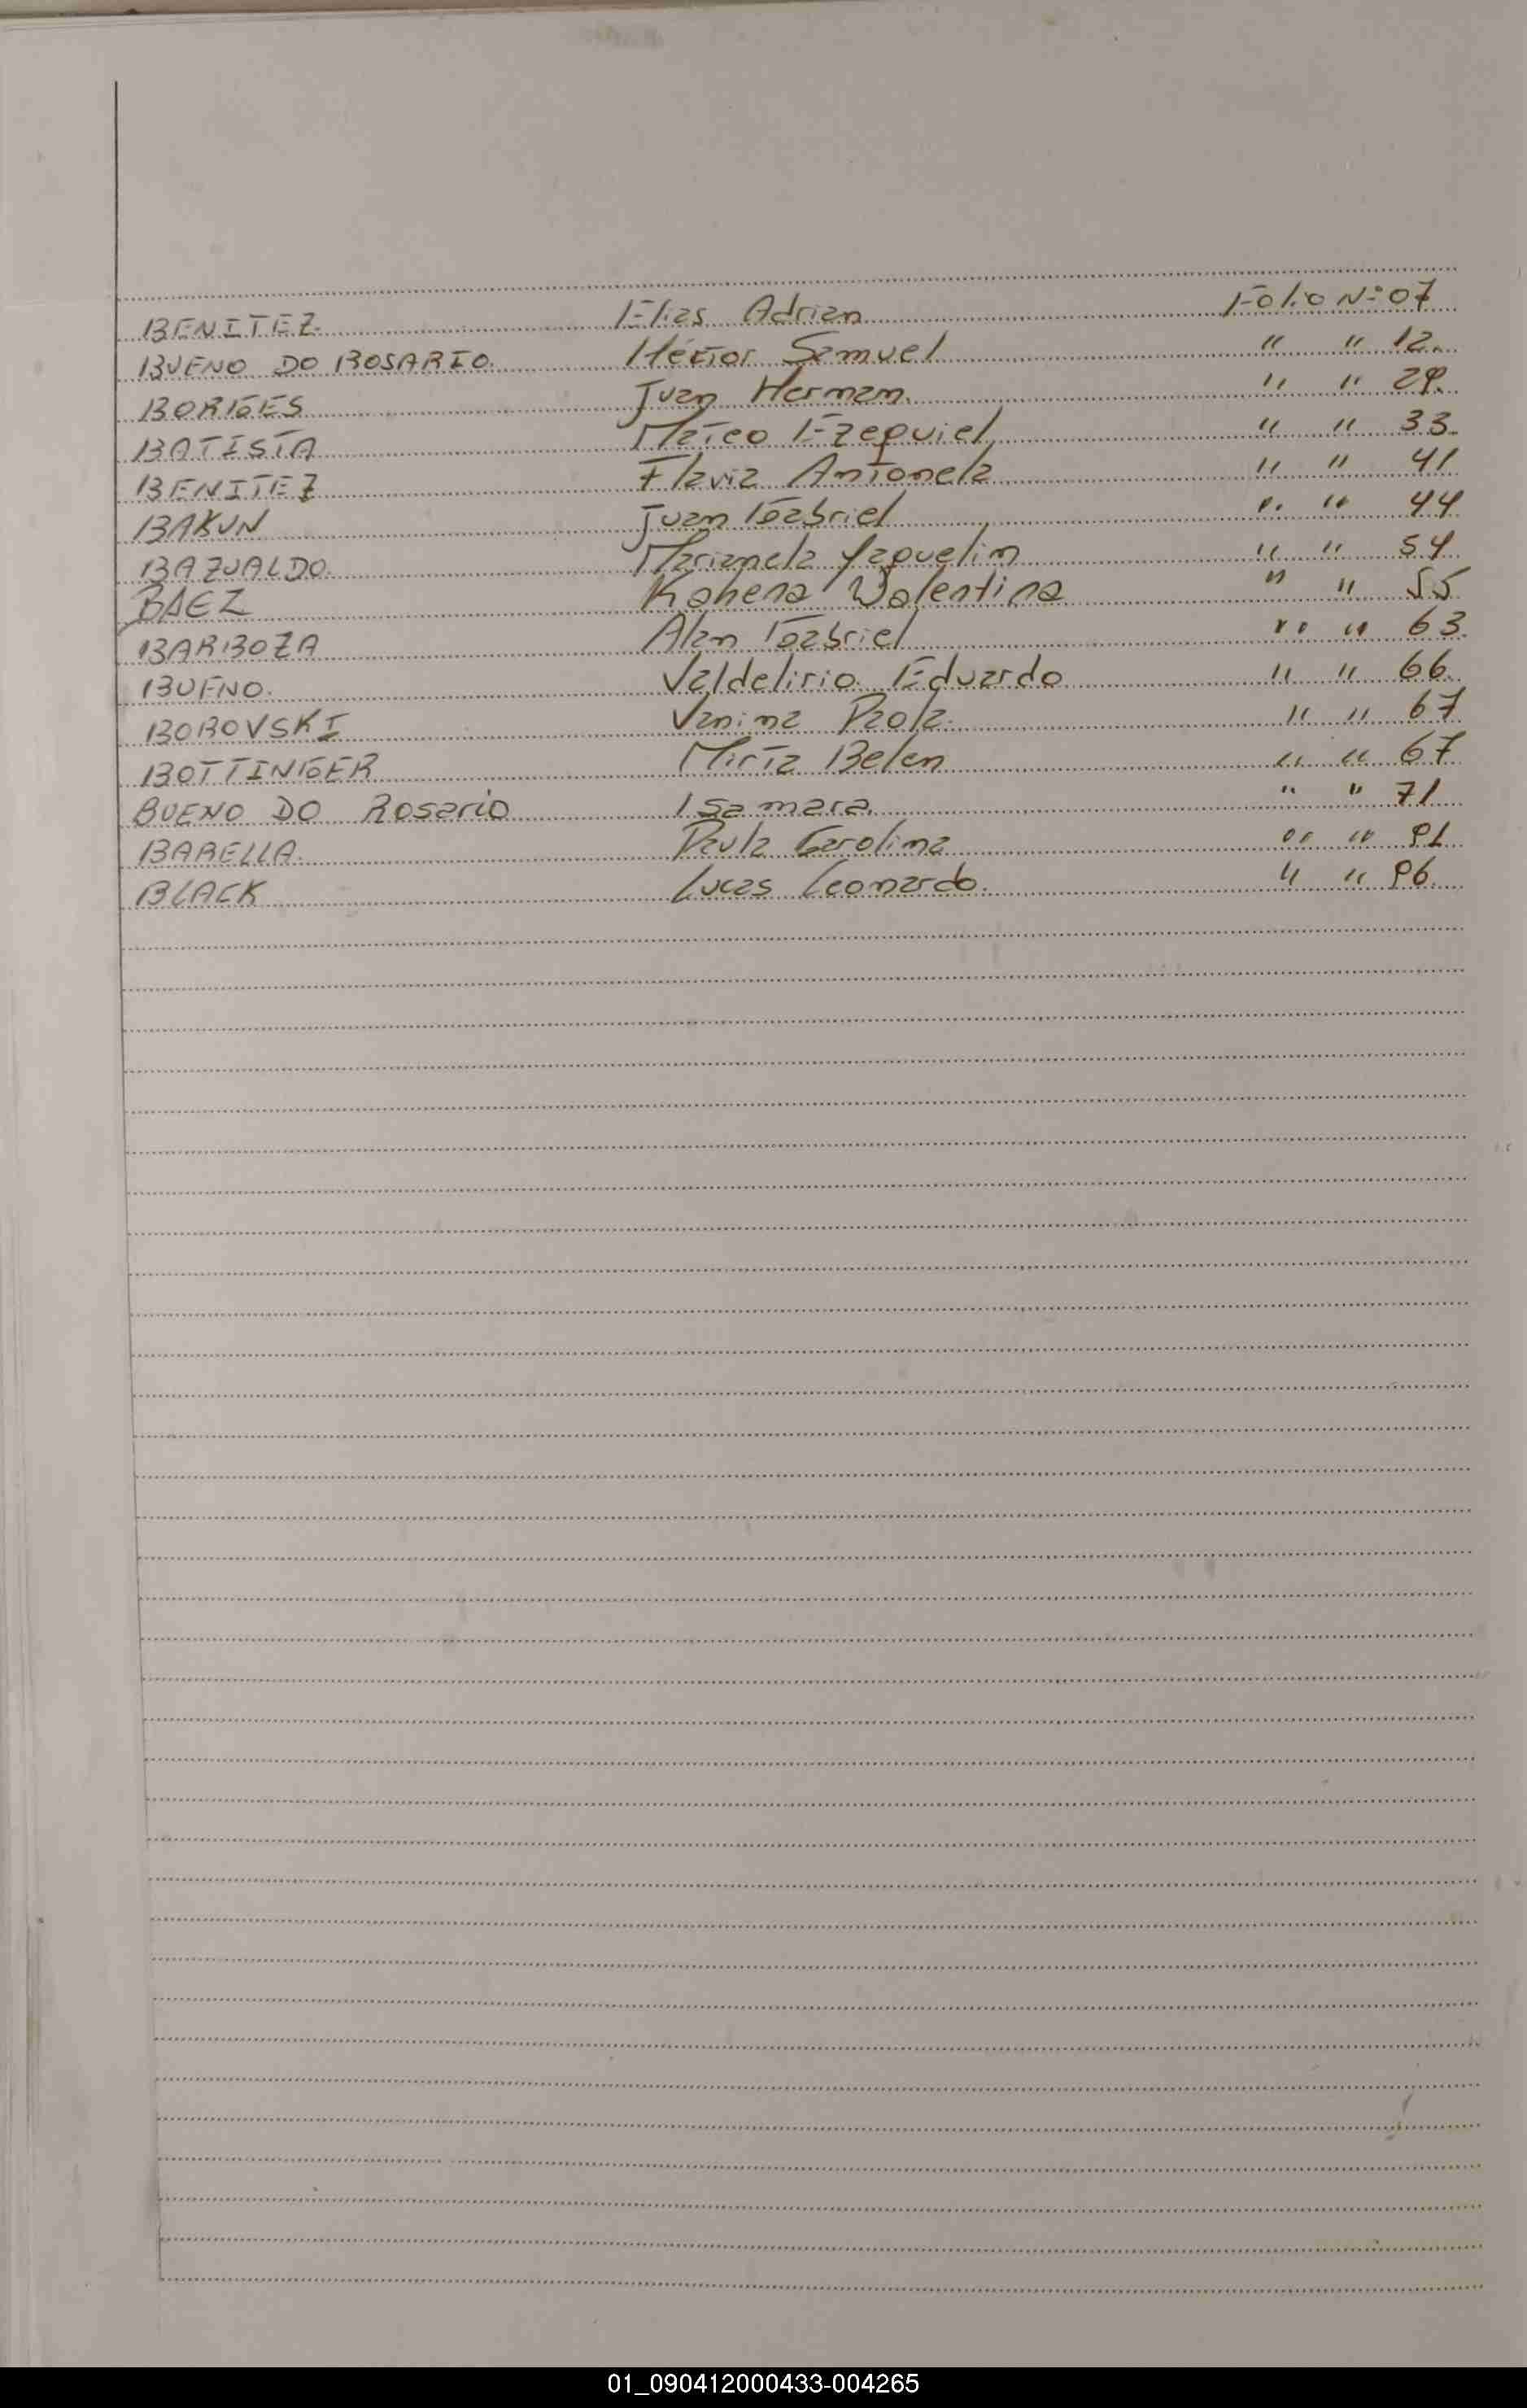 BENITEZ. Elias Adrian Folio Nº 07
BUENO DO ROSARIO. Héctor Samuel " " 12.
BORGES Juan Hernan. " " 29.
BATISTA Mateo Ezequiel " " 33.
BENITEZ Flavia Antonela " " 41
BAKUN Juan Gabriel " " 44
BAZUALDO. Marianela Yaquelin " " 54
BAEZ Kahena Walentina " " 55
BARBOZA Alan Gabriel " " 63.
BUENO. Valdelirio Eduardo " " 66.
BOROVSKI Vanina Paola. " " 67
BOTTINGER Mirta Belen " " 67
BUENO DO Rosario Isamara. " " 71
BARELLA. Paula Carolina " " 91
BLACK Lucas Leonardo. " " 96.
01_090412000433-004265